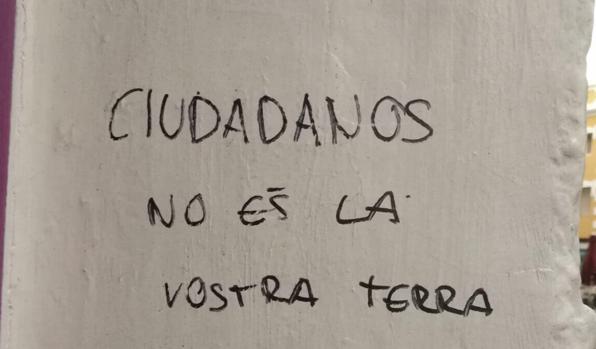 CIUDADANOS
NO ES LA
VOSTRA TERRA